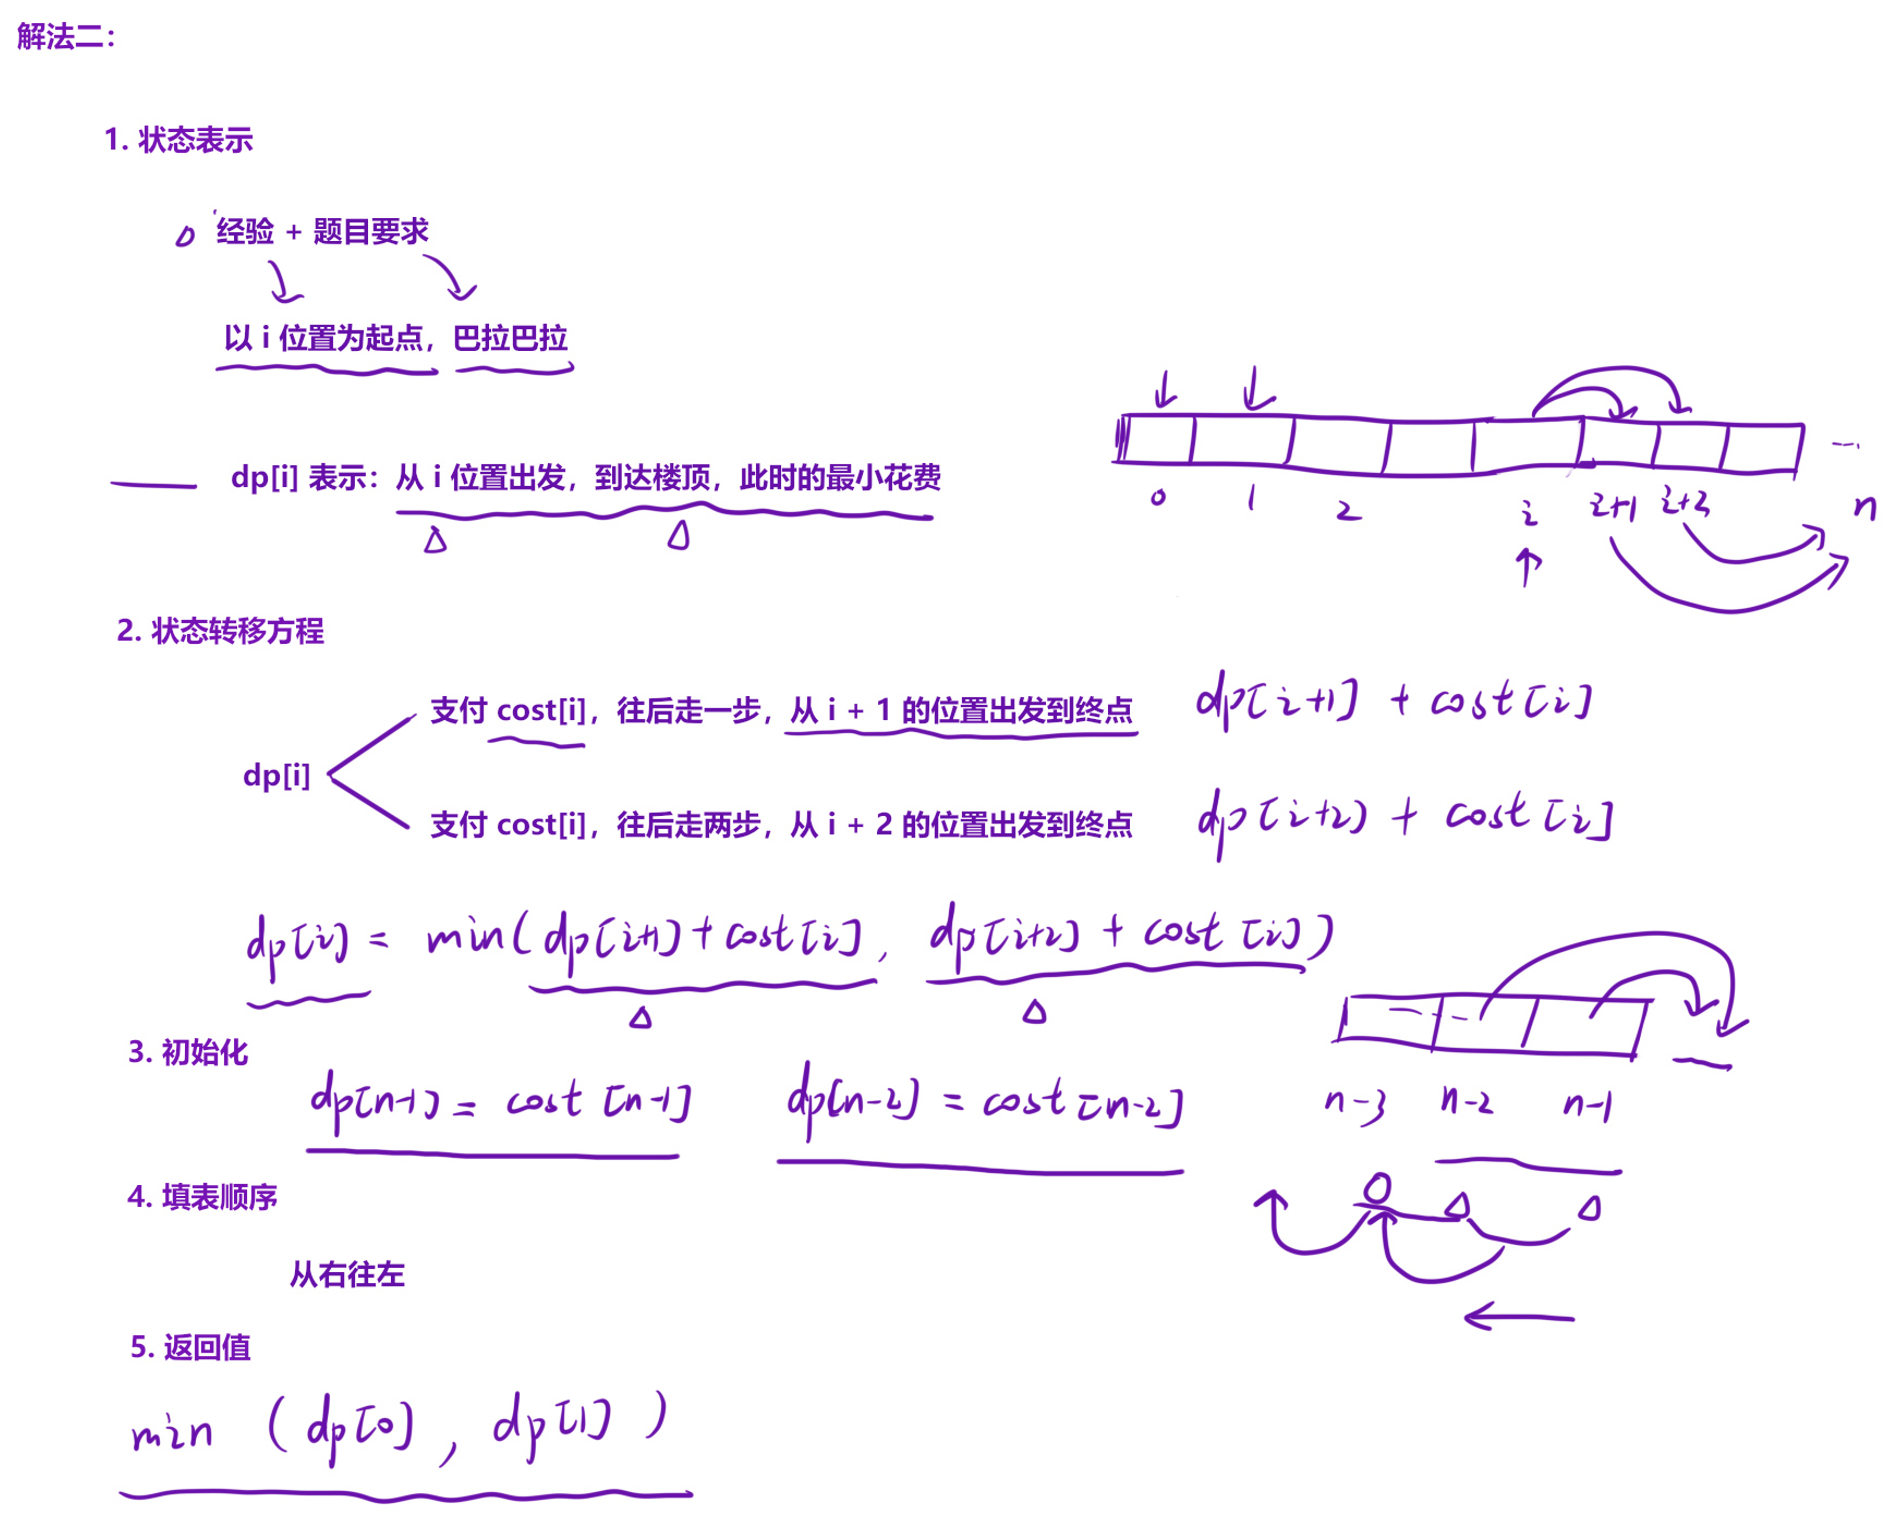 解法二：
1. 状态表示
经验 + 题目要求
以 i 位置为起点，巴拉巴拉
dp[i] 表示：从 i 位置出发，到达楼顶，此时的最小花费
0 1 2 i i+1 i+2 n
2. 状态转移方程
支付 cost[i]，往后走一步，从 i + 1 的位置出发到终点 dp[i+1] + cost[i]
dp[i]
支付 cost[i]，往后走两步，从 i + 2 的位置出发到终点 dp[i+2] + cost[i]
dp[i] = min(dp[i+1] + cost[i], dp[i+2] + cost[i])
3. 初始化
dp[n-1] = cost[n-1] dp[n-2] = cost[n-2]
n-3 n-2 n-1
4. 填表顺序
从右往左
5. 返回值
min (dp[0], dp[1])